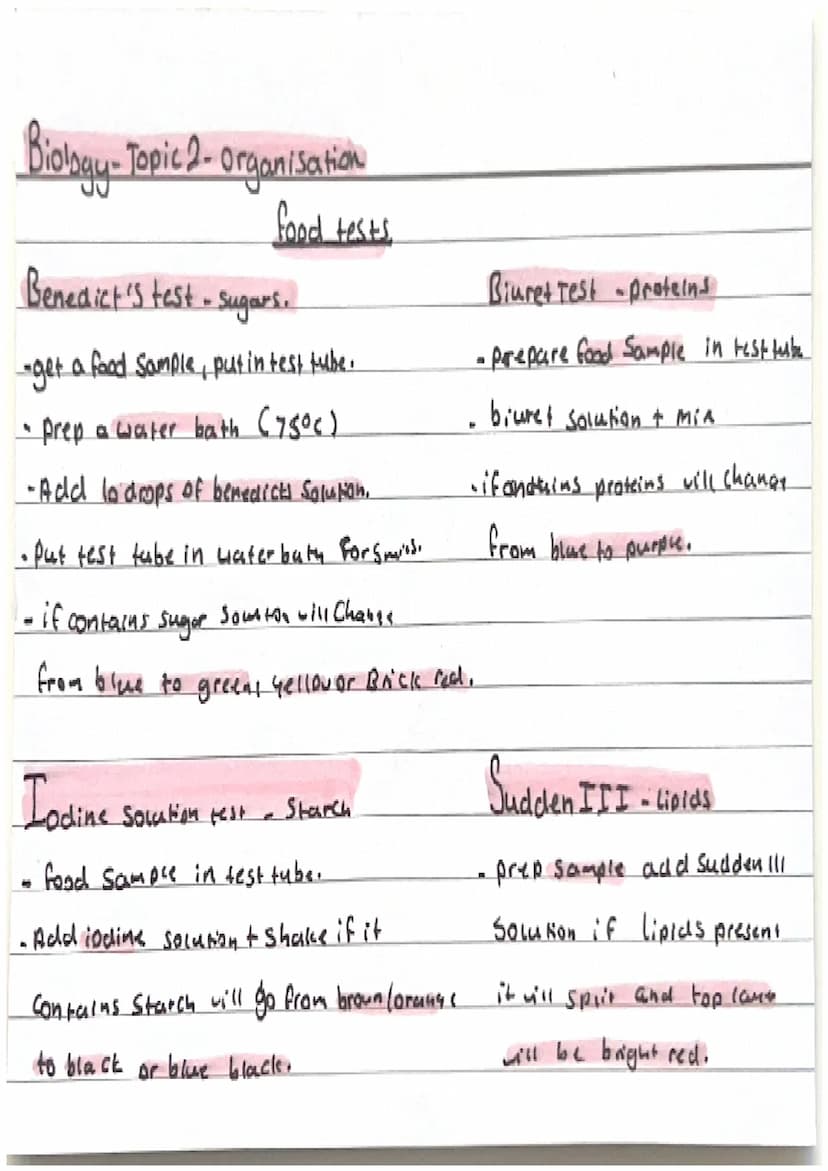 Biology - Topic 2 - organisation
food tests
Benedict's test - sugars.
-get a food sample, put in test tube.
• prep a water bath (75°c)
-Add 10 drops of benedicts solution.
• Put test tube in water baty for 5 mins.
- if contains sugar solution will change
from blue to green, yellow or Brick red.
Biuret Test - proteins
- prepare food sample in test tube
. biuret solution + mix
• if contains proteins will change
from blue to purple.
Iodine solution test - starch
- food sample in test tube.
. Add iodine solution + shake if it
contains starch will go from brown/orange
to black or blue black.
Sudden III - Lipids
- prep sample add Sudden III
solution if lipids present
it will split and top layer
will be bright red.